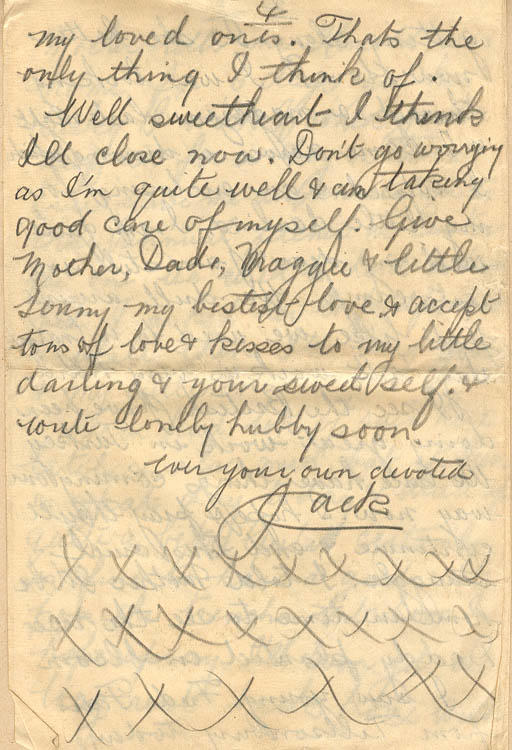 4
my loved ones. Thats the
only thing I think of.
Well sweetheart I think
Ill close now. Don't go worrying
as I'm quite well & am taking
good care of myself. Give
Mother, Dade, Maggie & little
Sonny my bestist love & accept
tons of love & kisses to my little
darling & your sweet self. &
write lonely hubby soon.
ever your own devoted
Jack
X X X X X X X X X
X X X X X X X X
X X X X X X X